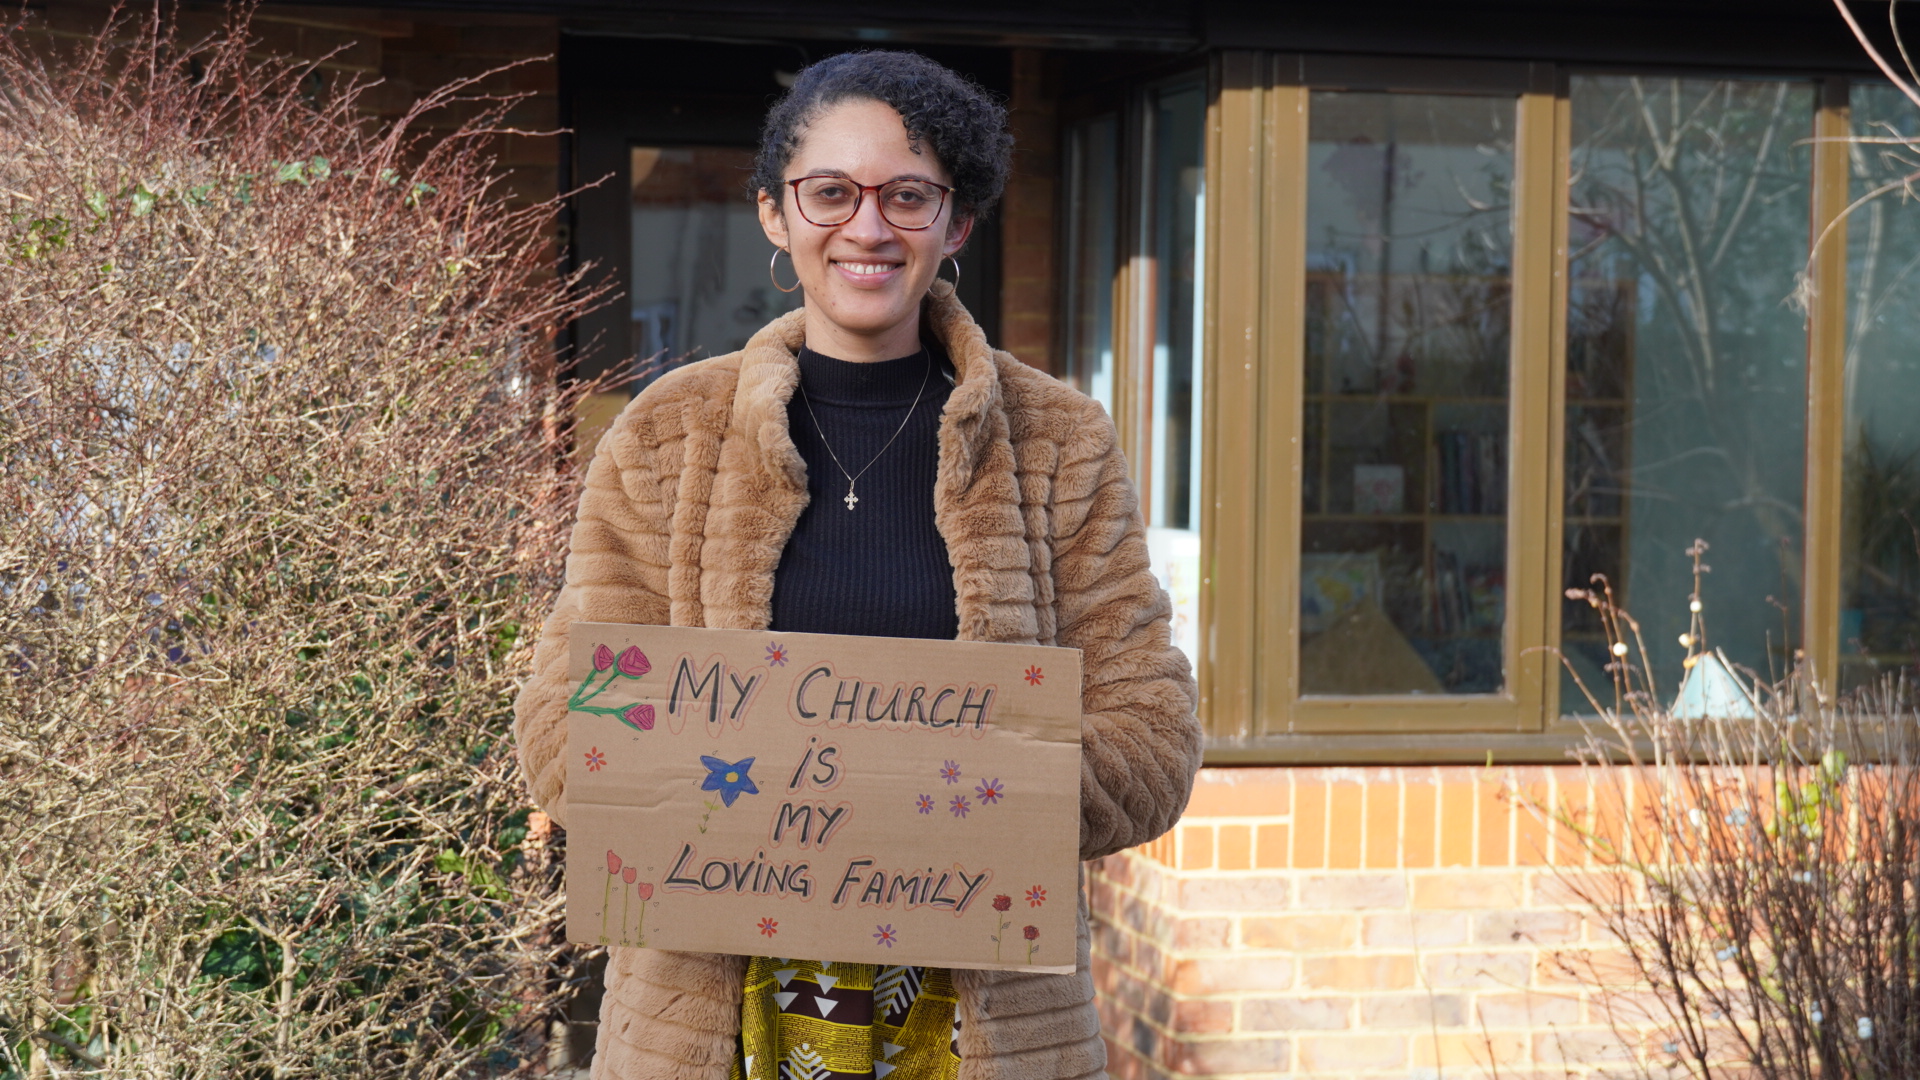 My Church
is
my
Loving Family